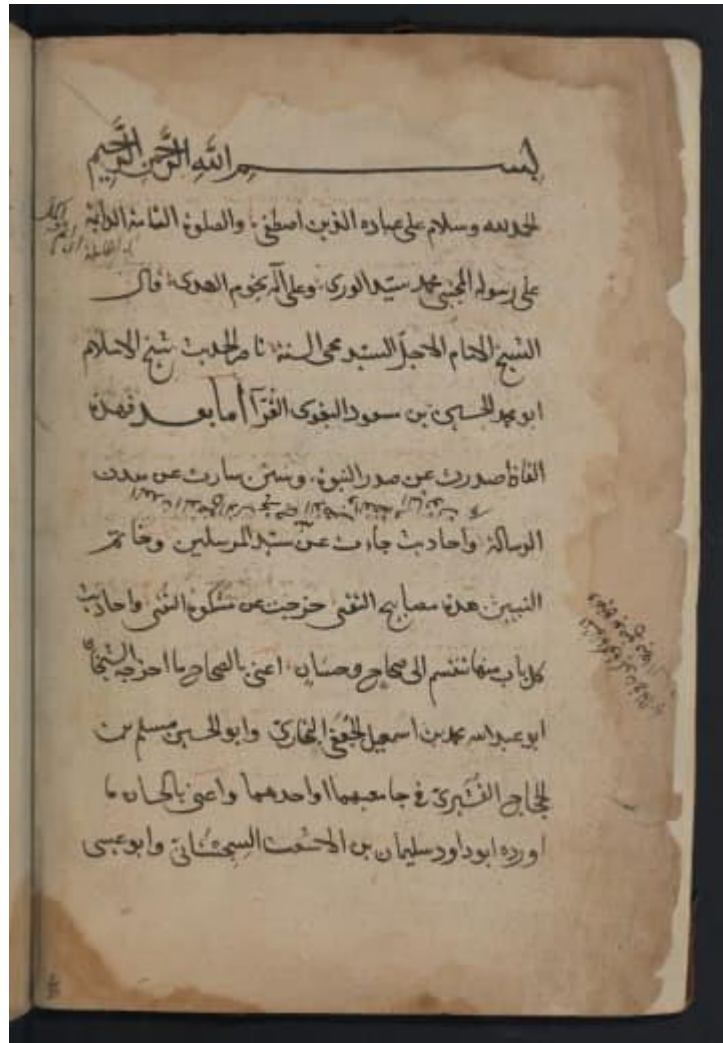 بسم الله الرحمن الرحيم
الحمد لله وسلام على عباده الذين اصطفى والصلوة التامة الدائمة
على رسوله المجتبى محمد سيد الورى وعلى آله نجوم الهدى قال
الشيخ الامام الاجل السيد محيى السنة ناصر الحديث شيخ الاسلام
ابو محمد الحسين بن مسعود البغوى الفرآ أما بعد فهذه
الفاظ صدرت عن صدر النبوة وسنن سارت عن معدن
الرسالة واحاديث جاءت عن سيد المرسلين وخاتم
النبيين هذه مصابيح التقى خرجت عن مشكوة التقى واحاديث
كل باب منها تنقسم الى صحاح وحسان اعنى بالصحاح ما اخرجه الشيخان
ابو عبدالله محمد بن اسمعيل الجعفى البخارى وابو الحسين مسلم بن
الحجاج القشيرى فى جامعيهما او احدهما واعنى بالحسان ما
اورده ابو داود سليمان بن الاشعث السجستانى وابو عيسى